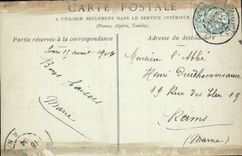 CARTE POSTALE
A UTILISER SEULEMENT DANS LE SERVICE INTÉRIEUR
(France, Algérie, Tunisie).
Partie réservée à la correspondance
Adresse du destinataire
août 1904
Bons baisers
Marie
Monsieur l'Abbé
Henri Prudhommeaux
19 Rue des 19
Reims
(Marne)